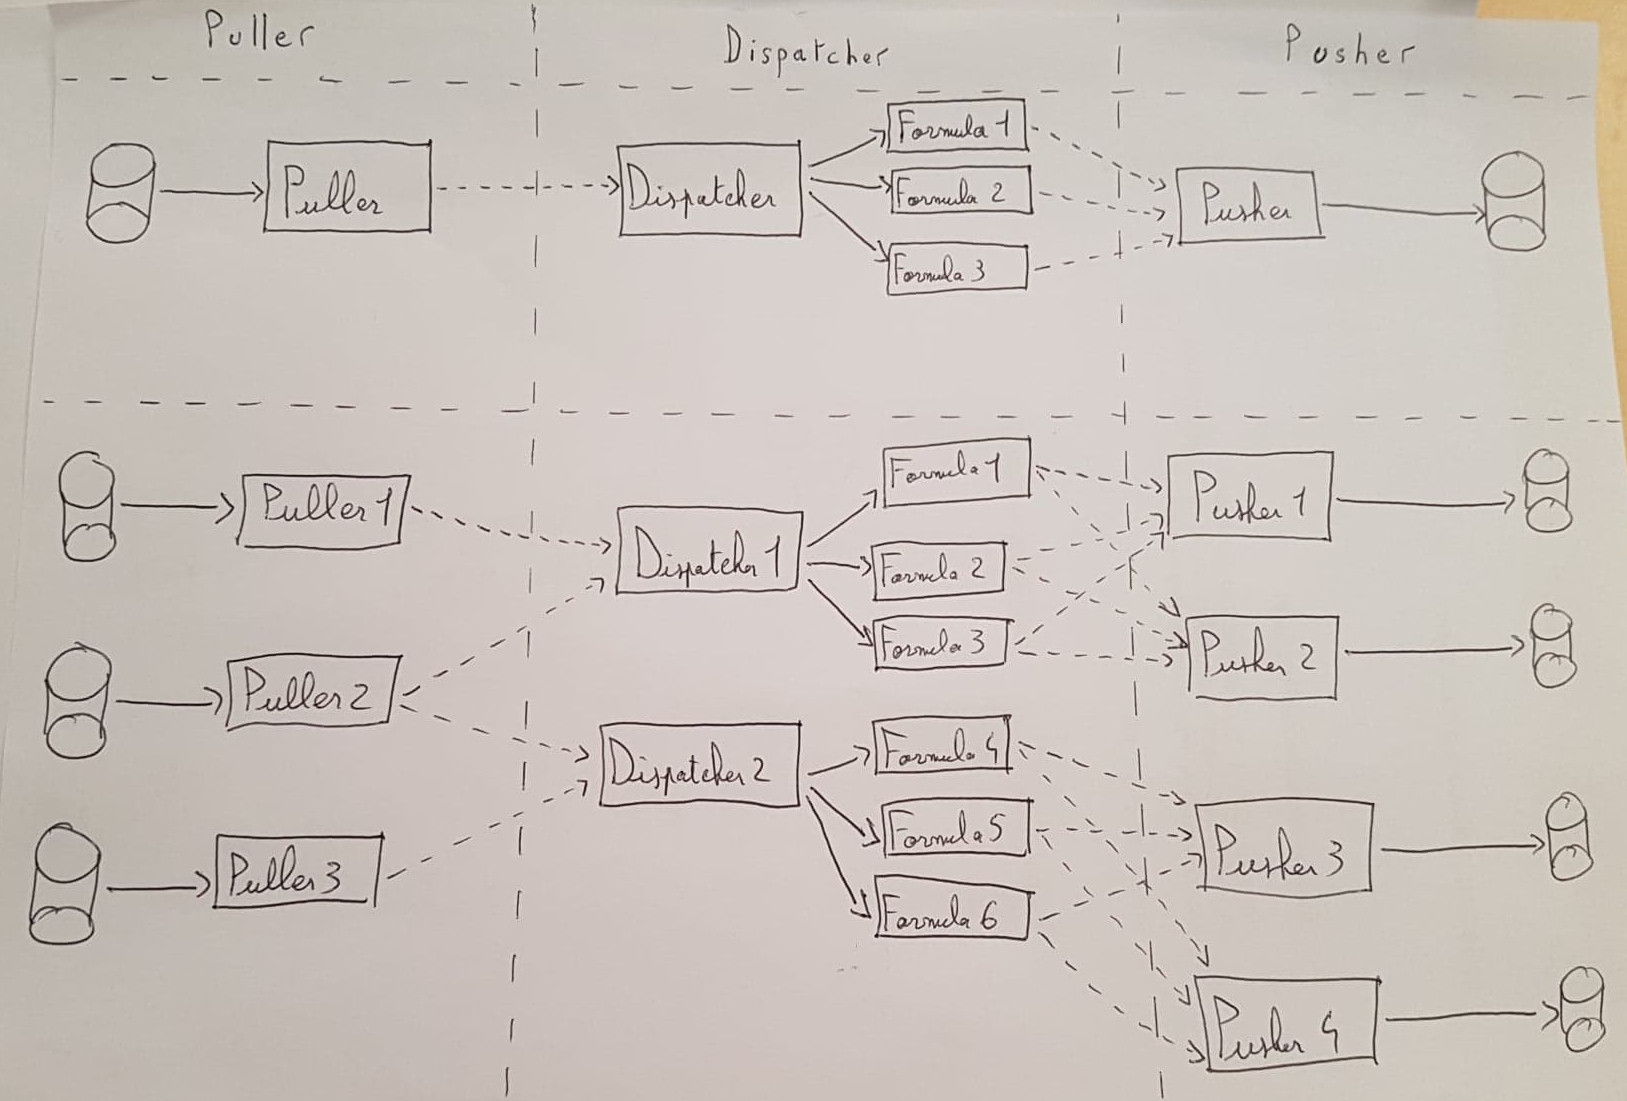 Puller
Dispatcher
Pusher
Puller
Dispatcher
Formula 1
Formula 2
Formula 3
Pusher
Puller 1
Puller 2
Puller 3
Dispatcher 1
Dispatcher 2
Formula 1
Formula 2
Formula 3
Formula 4
Formula 5
Formula 6
Pusher 1
Pusher 2
Pusher 3
Pusher 4